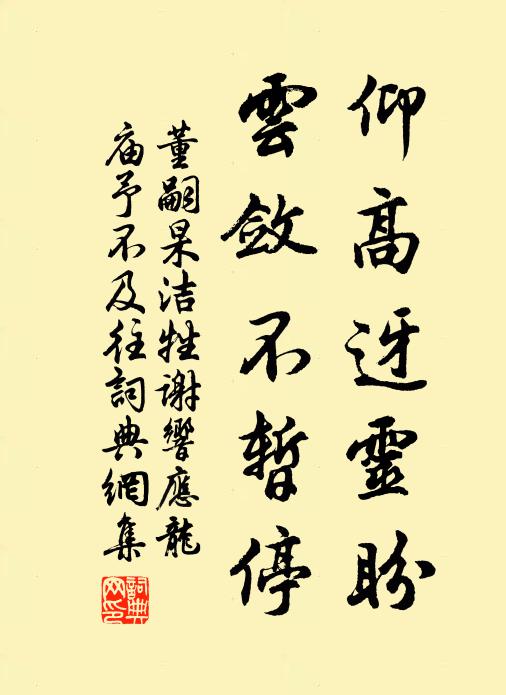 仰高迓靈盼
雲斂不暫停
董嗣杲洁牲谢響應龍
庙予不及往詞典網集
詞典网印